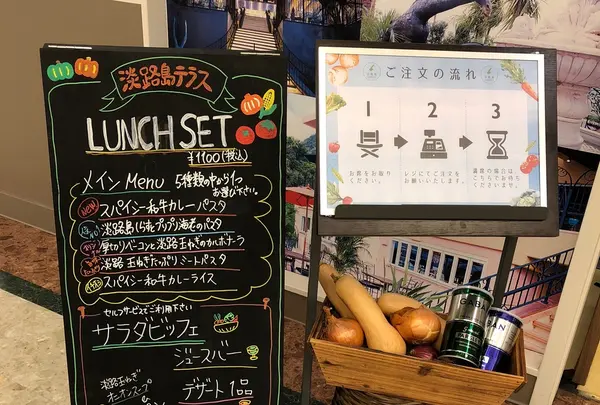 淡路島テラス
LUNCH SET
¥1100(税込)
メイン Menu
5種類の中から1つ
お選び下さい。
NEW
スパイシー和牛カレーパスタ
淡路島しらすとプリプリ海老のパスタ
厚切りベーコンと淡路玉ねぎのカルボナーラ
淡路玉ねぎたっぷりミートパスタ
スパイシー和牛カレーライス
セルフサービスでご利用下さい
サラダビッフェ
ジュースバー
淡路玉ねぎ
オニオンスープ
デザート1品
ご注文の流れ
1
2
3
お席をお取り
ください。
レジにてご注文を
お願いいたします。
こちらでお待ち
くださいませ。